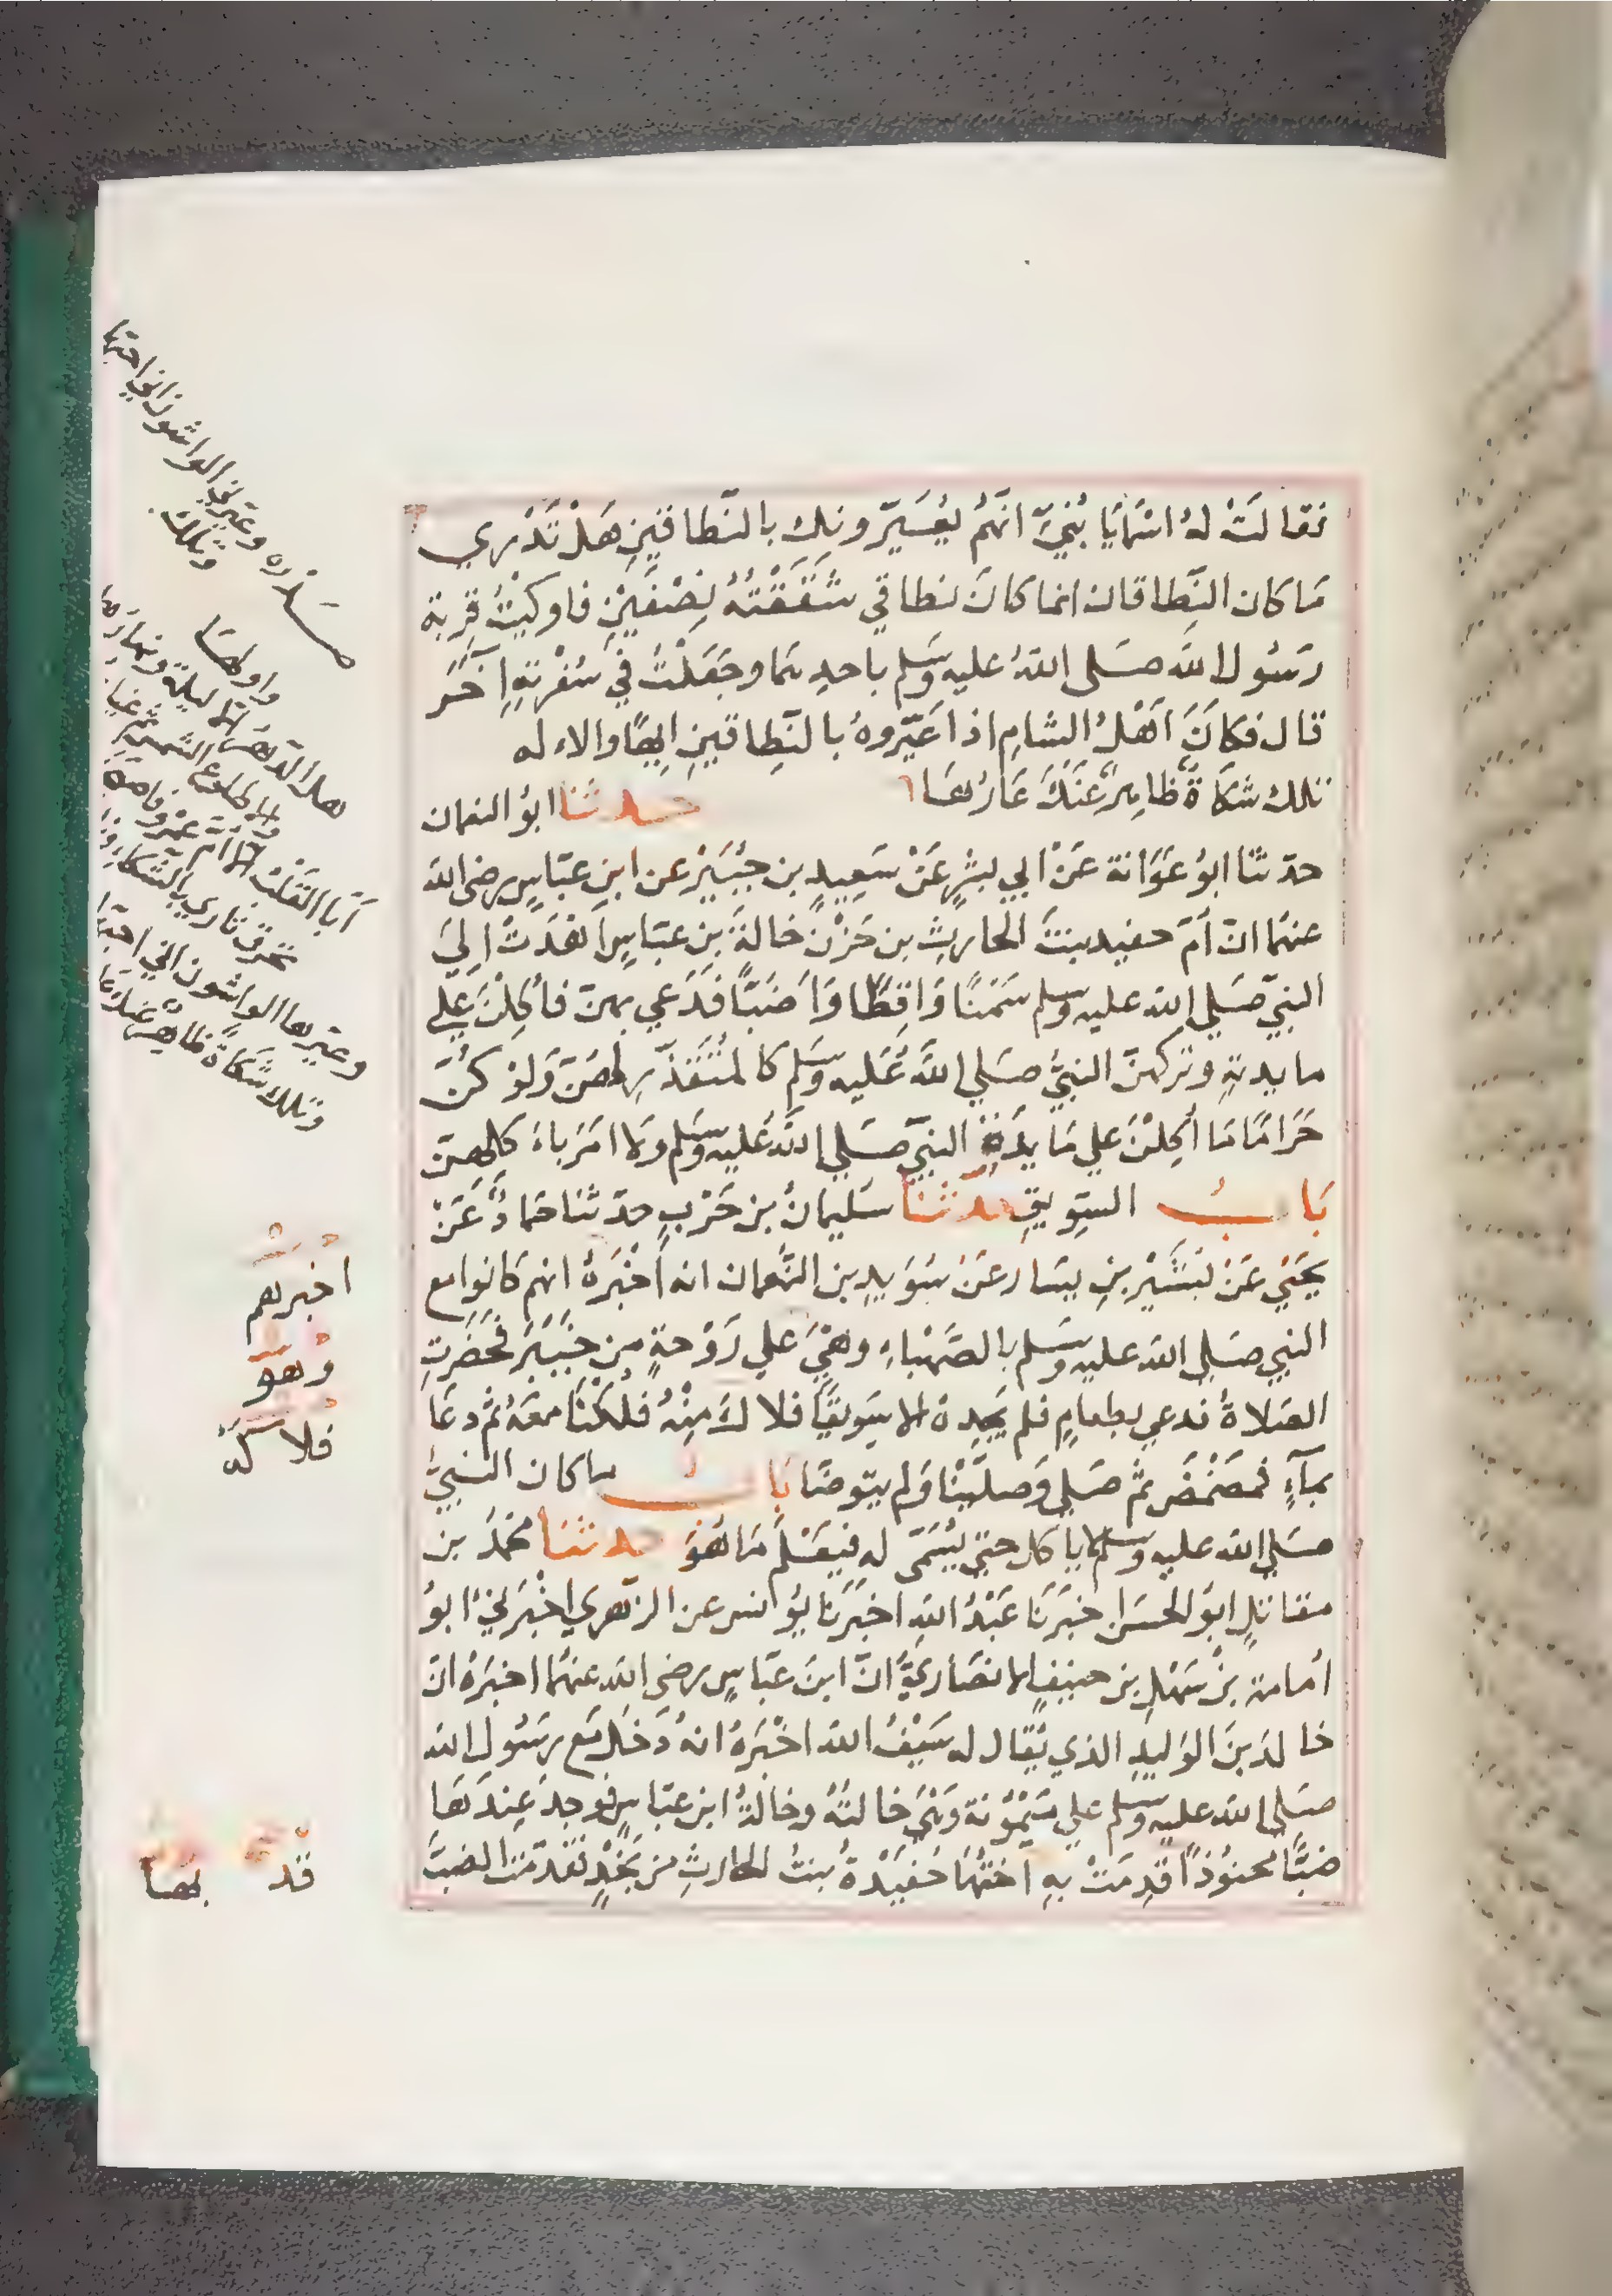 فقالَتْ لهُ اسْمَايَا بُنَيَّ انَّهُمْ يُعَيِّرونك بالنَّطاقَينِ هَلْ تَدْري
مَا كان النِّطاقان انما كانَ نطاقي شَقَقْتُهُ نِصْفَيْنِ فاوكيْتُ قِربة
رَسُول الله صَلى اللهُ عليه وَسَلم باحدِهمَا وجَعَلْتُ فيْ سُفْرتِهِ آخَرَ
قال فكانَ اَهْلُ الشامِ اذا عَيَّروهُ بالنِّطاقينِ ايهًا والاله
تلك شكاةٌ ظاهِرٌ عَنْكَ عَارُهَا حدثنا ابوُ النعمان
حدّثنا ابوُ عَوَانة عَنْ ابي بشْرٍ عَنْ سَعِيدِ بن جُبَيْرْ عن ابنِ عبّاسٍ رضي الله
عنهمَا انّ اُمّ حفيد بنتَ الحارثِ بن حَزْن خالةَ بن عبّاسٍ اَهْدَتْ اِليَ
النبيّ صَلي الله عليه وسلم سَمْنًا وَاقِطًا وَاَضَبًّا فَدَعي بهنّ فأُكِلْنَ عَلي
مايدتهِ وتركهنّ النبيُّ صَلي اللهُ عَليه وَسَلم كالمُتَقَذّر لهُنّ وَلوْ كُنّ
حَرَامًا مَا اُكِلْنَ علي مَايدَة النبيّ صَلي اللهُ عَليه وسَلم ولا امَرَ باكلهنّ
بَابُ السّوِيقِ حدثنا سَليمانُ بن حَرْبٍ حدّثنا حَمادٌ عَنْ
يحَيٰ عَنْ بُشَيْرِ بنِ يسَار عَنْ سُوَيدِ بن النُّعمان انه اَخْبَرَهُ انهم كَانوا مع
النبي صَلي الله عليه وسَلم بالصَّهْبَاءِ وهْيَ علي رَوْحَةٍ مِن خَيْبَرَ فحَضَرَتِ
الصَلاةُ فدعي بطعامٍ فلم يَجِدهُ الا سَويقًا فلاكَ مِنْهُ فلُكْنَا معَهُ ثُم دعَا
بمآءٍ فمضْمَضَ ثُم صَلي وَصلّيْنَا وَلم يتوضّا بَابُ ما كان النبيُّ
صَلي الله عليه وسَلم لا ياكل حَتيٰ يُسَمّى له فيعَلمَ مَا هُوَ حدثنا محمّدُ بن
مقاتلٍ ابوُ الحسَن اخبرَنَا عَبْدُ اللهِ اخبَرَنا يوُنس عن الزّهري اخْبَرَني ابوُ
اُمامة بنُ سَهْلِ بن حنيفٍ الانصَاريُّ انّ ابنَ عبّاسٍ رضي الله عنهُمَا اخبَرَهُ انّ
خالدَ بنَ الوَليدِ الذي يُقال له سَيْفُ الله اخْبَرَهُ انهُ دَخَل مَع رسُولِ الله
صَلى الله عليه وسلم علي مَيْمُونة وَهْيَ خالتُهُ وخالةُ ابن عبّاسٍ فوجدَ عِندَهَا
ضبًّا محنوُذًا قدِمَتْ بهِ اختهُا حُفَيْدَةُ بنتُ الحارثِ من نجْدٍ فقدّمَتِ الضبّ
وعيّرني الواشون اني احبّها
وتلك
ونهارها
هل الدهر الا ليلة
والا طلوع الشمس ثم غيا
أبا القلب الا ام عمرو
تحرق ناري بالشكاة
وعيّرها الواشون اني احبّها
وتلك شكاة ظاهر عنك عارها
اخبرهم
وهو
فلاكه
قد بها